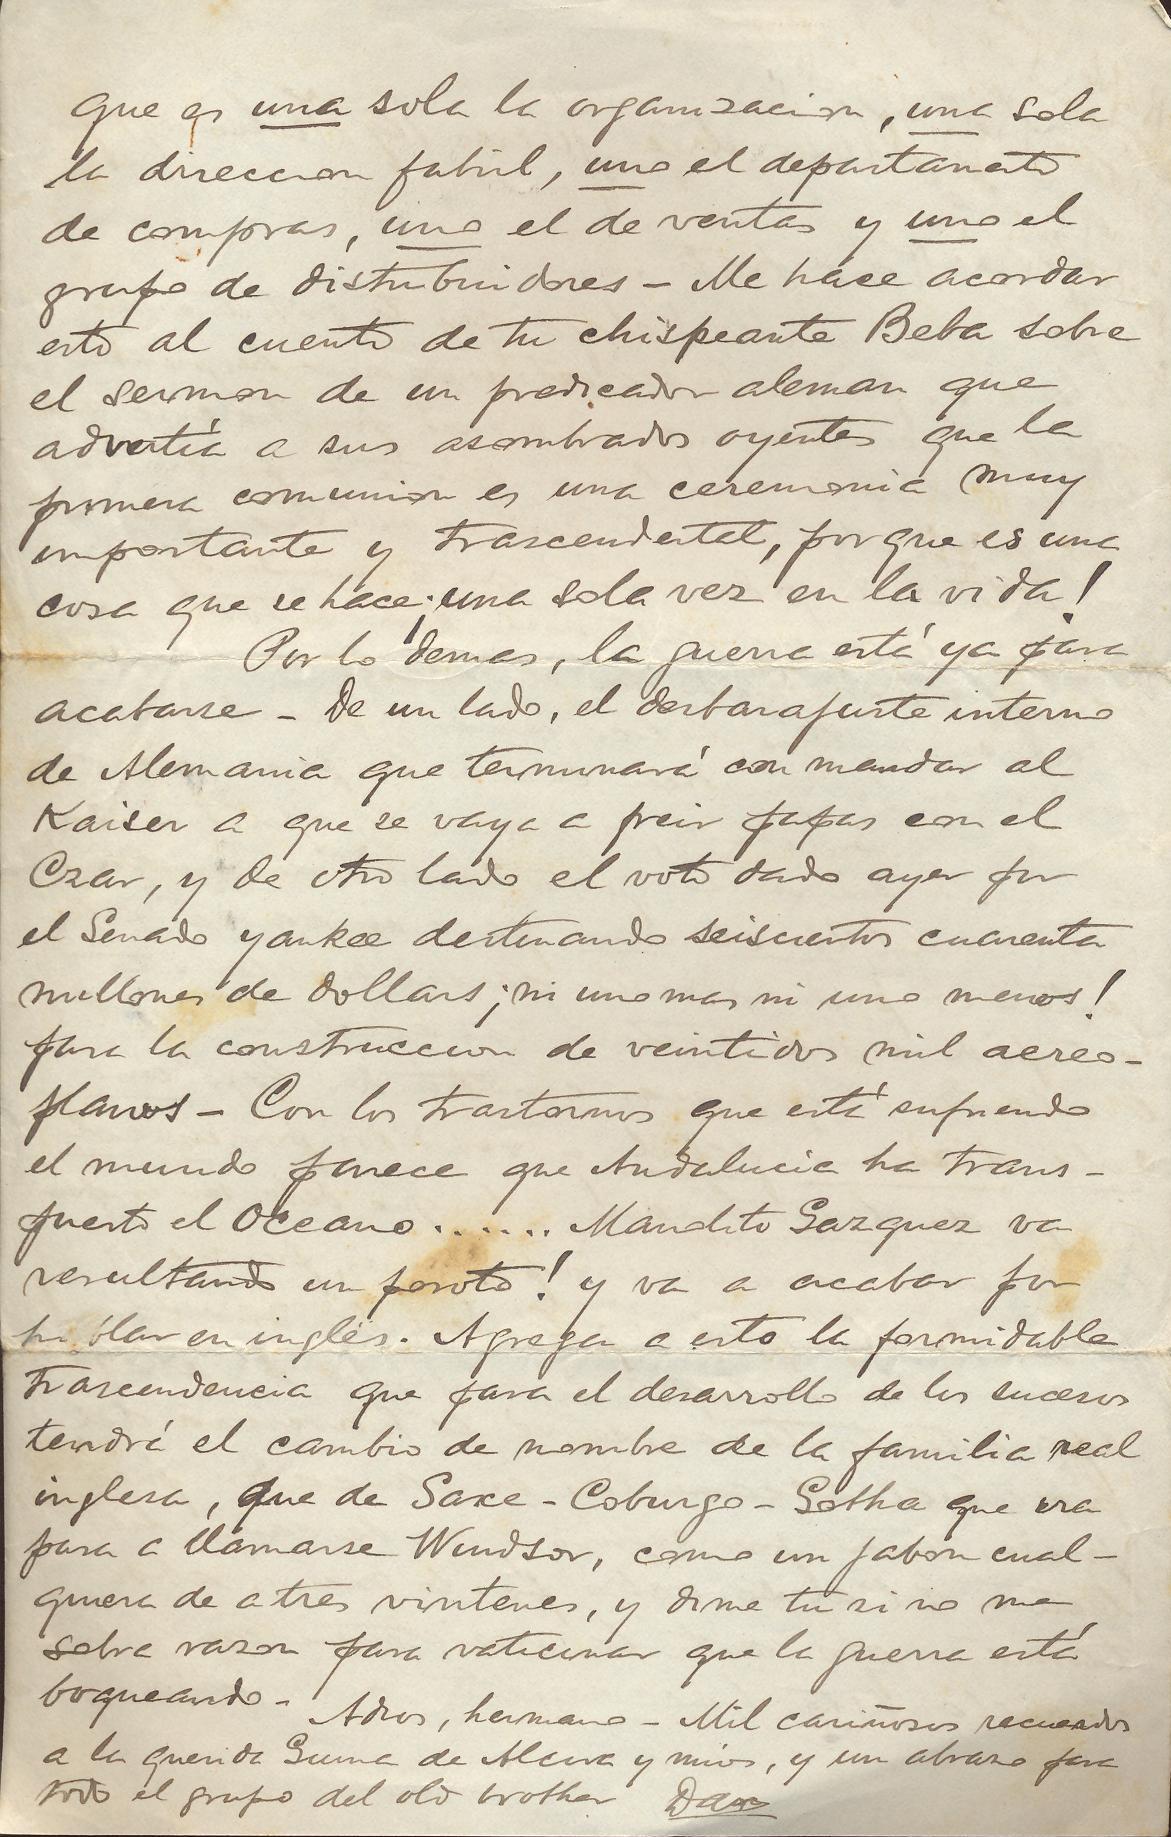 que es una sola la organizacion, una sola
la direccion fabril, uno el departamento
de compras, uno el de ventas y uno el
grupo de distribuidores – Me hace acordar
esto al cuento de tu chispeante Beba sobre
el sermon de un predicador aleman que
advertía a sus asombrados oyentes que la
primera comunion es una ceremonia muy
importante y trascendental, porque es una
cosa que se hace ¡una sola vez en la vida!
Por lo demas, la guerra está ya para
acabarse – De un lado, el desbarajuste interno
de Alemania que terminará con mandar al
Kaiser a que se vaya a freir papas con el
Czar, y de otro lado el voto dado ayer por
el Senado yankee destinando seiscientos cuarenta
millones de dollars ¡ni uno mas ni uno menos!
para la construccion de veintidos mil aereo-
planos – Con los trastornos que está sufriendo
el mundo parece que Andalucia ha trans-
puesto el Oceano ...... Manolito Gazquez va
resultando un poroto! y va a acabar por
hablar en inglés. Agrega a esto la formidable
trascendencia que para el desarrollo de los sucesos
tendrá el cambio de nombre de la familia real
inglesa, que de Saxe-Coburgo-Gotha que era
pasa a llamarse Windsor, como un jabon cual-
quiera de a tres vintenes, y dime tu si no me
sobra razon para vaticinar que la guerra está
boqueando –
Adios, hermano – Mil cariñosos recuerdos
a la querida Guma de Alcira y mios, y un abrazo para
todo el grupo del old brother